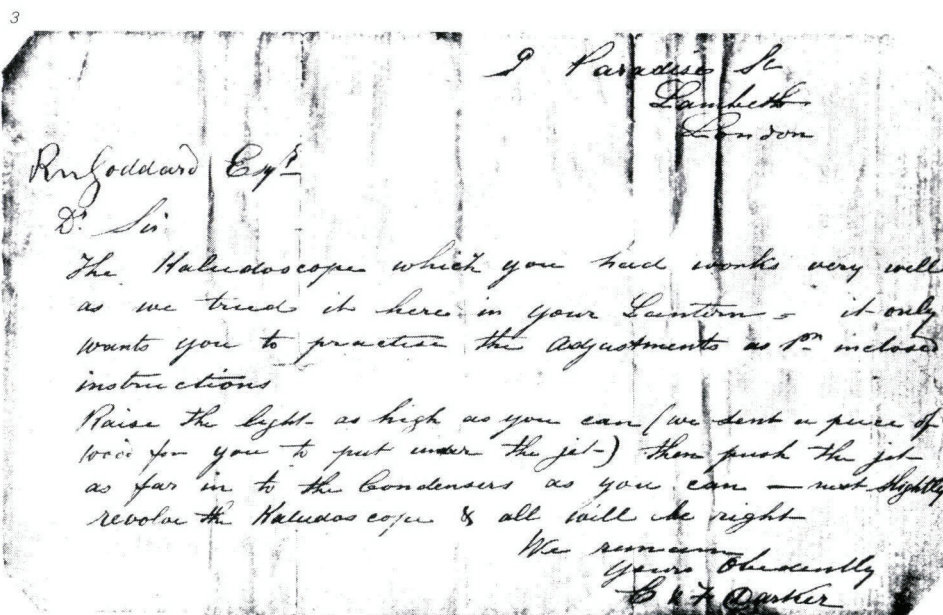 3
9 Paradise St
Lambeth
London
Rn Goddard Esqr
Dr Sir
The Kaludoscope which you had works very well
as we tried it here in your Lantern - it only
wants you to practise the adjustments as pr inclosed
instructions
Raise the light as high as you can (we sent a piece of
wood for you to put under the jet) then push the jet
as far in to the Condensers as you can — next slightly
revolve the Kaludoscope & all will be right
We remain
yours Obediently
E & F Darker